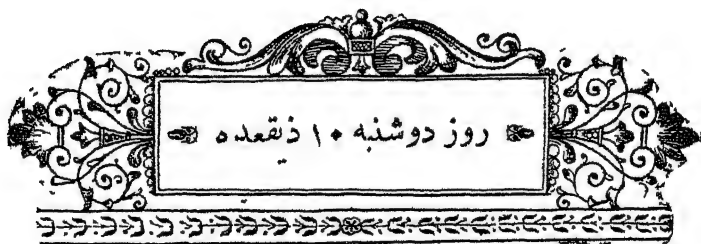 روز دوشنبه ۱۰ ذیقعده